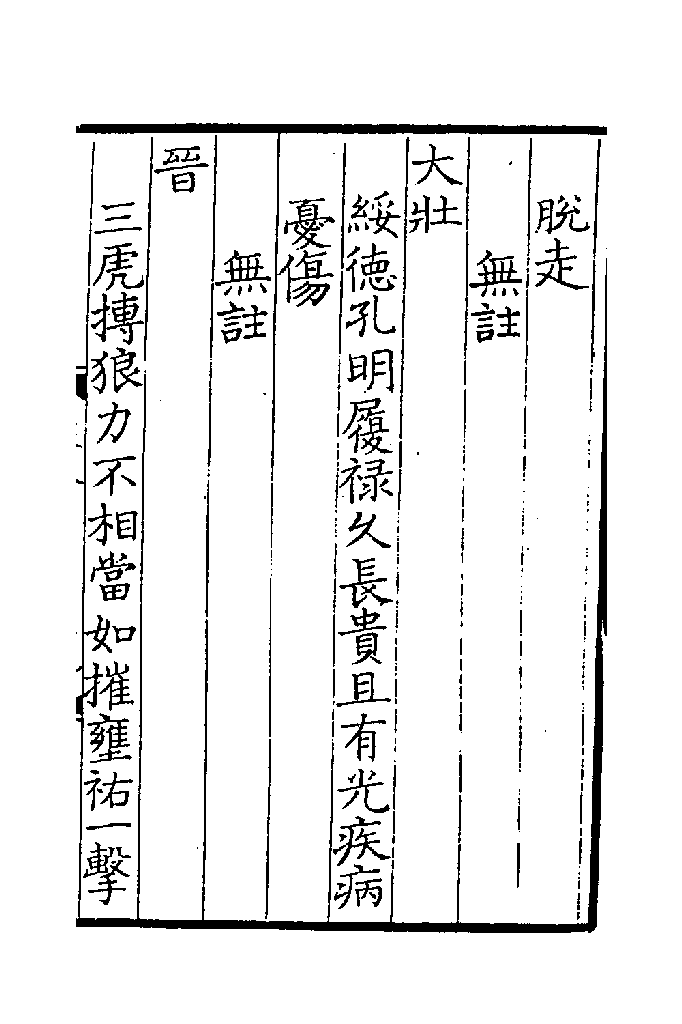 脫走
無註
大壯
綏德孔明履祿久長貴且有光疾病
憂傷
無註
晉
三虎搏狼力不相當如摧壅祐一擊